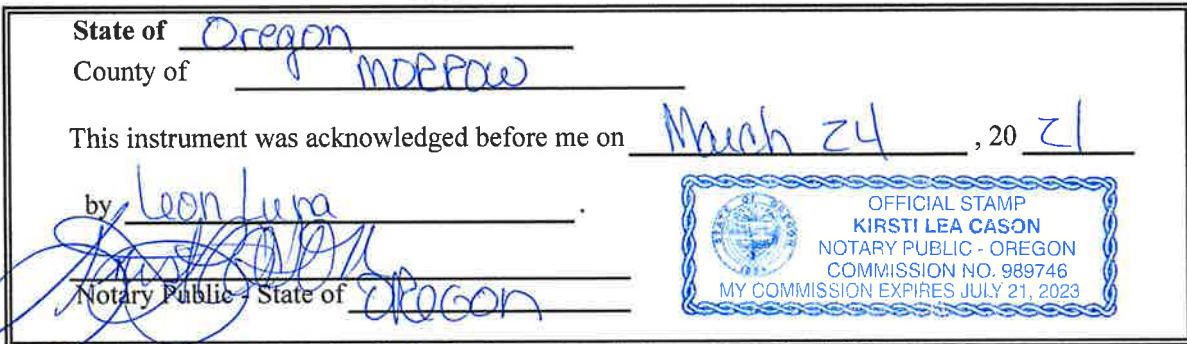 State of Oregon
County of MORROW
This instrument was acknowledged before me on March 24, 20 21
by Leon Luna.
Notary Public - State of OREGON
OFFICIAL STAMP
KIRSTI LEA CASON
NOTARY PUBLIC - OREGON
COMMISSION NO. 989746
MY COMMISSION EXPIRES JULY 21, 2023